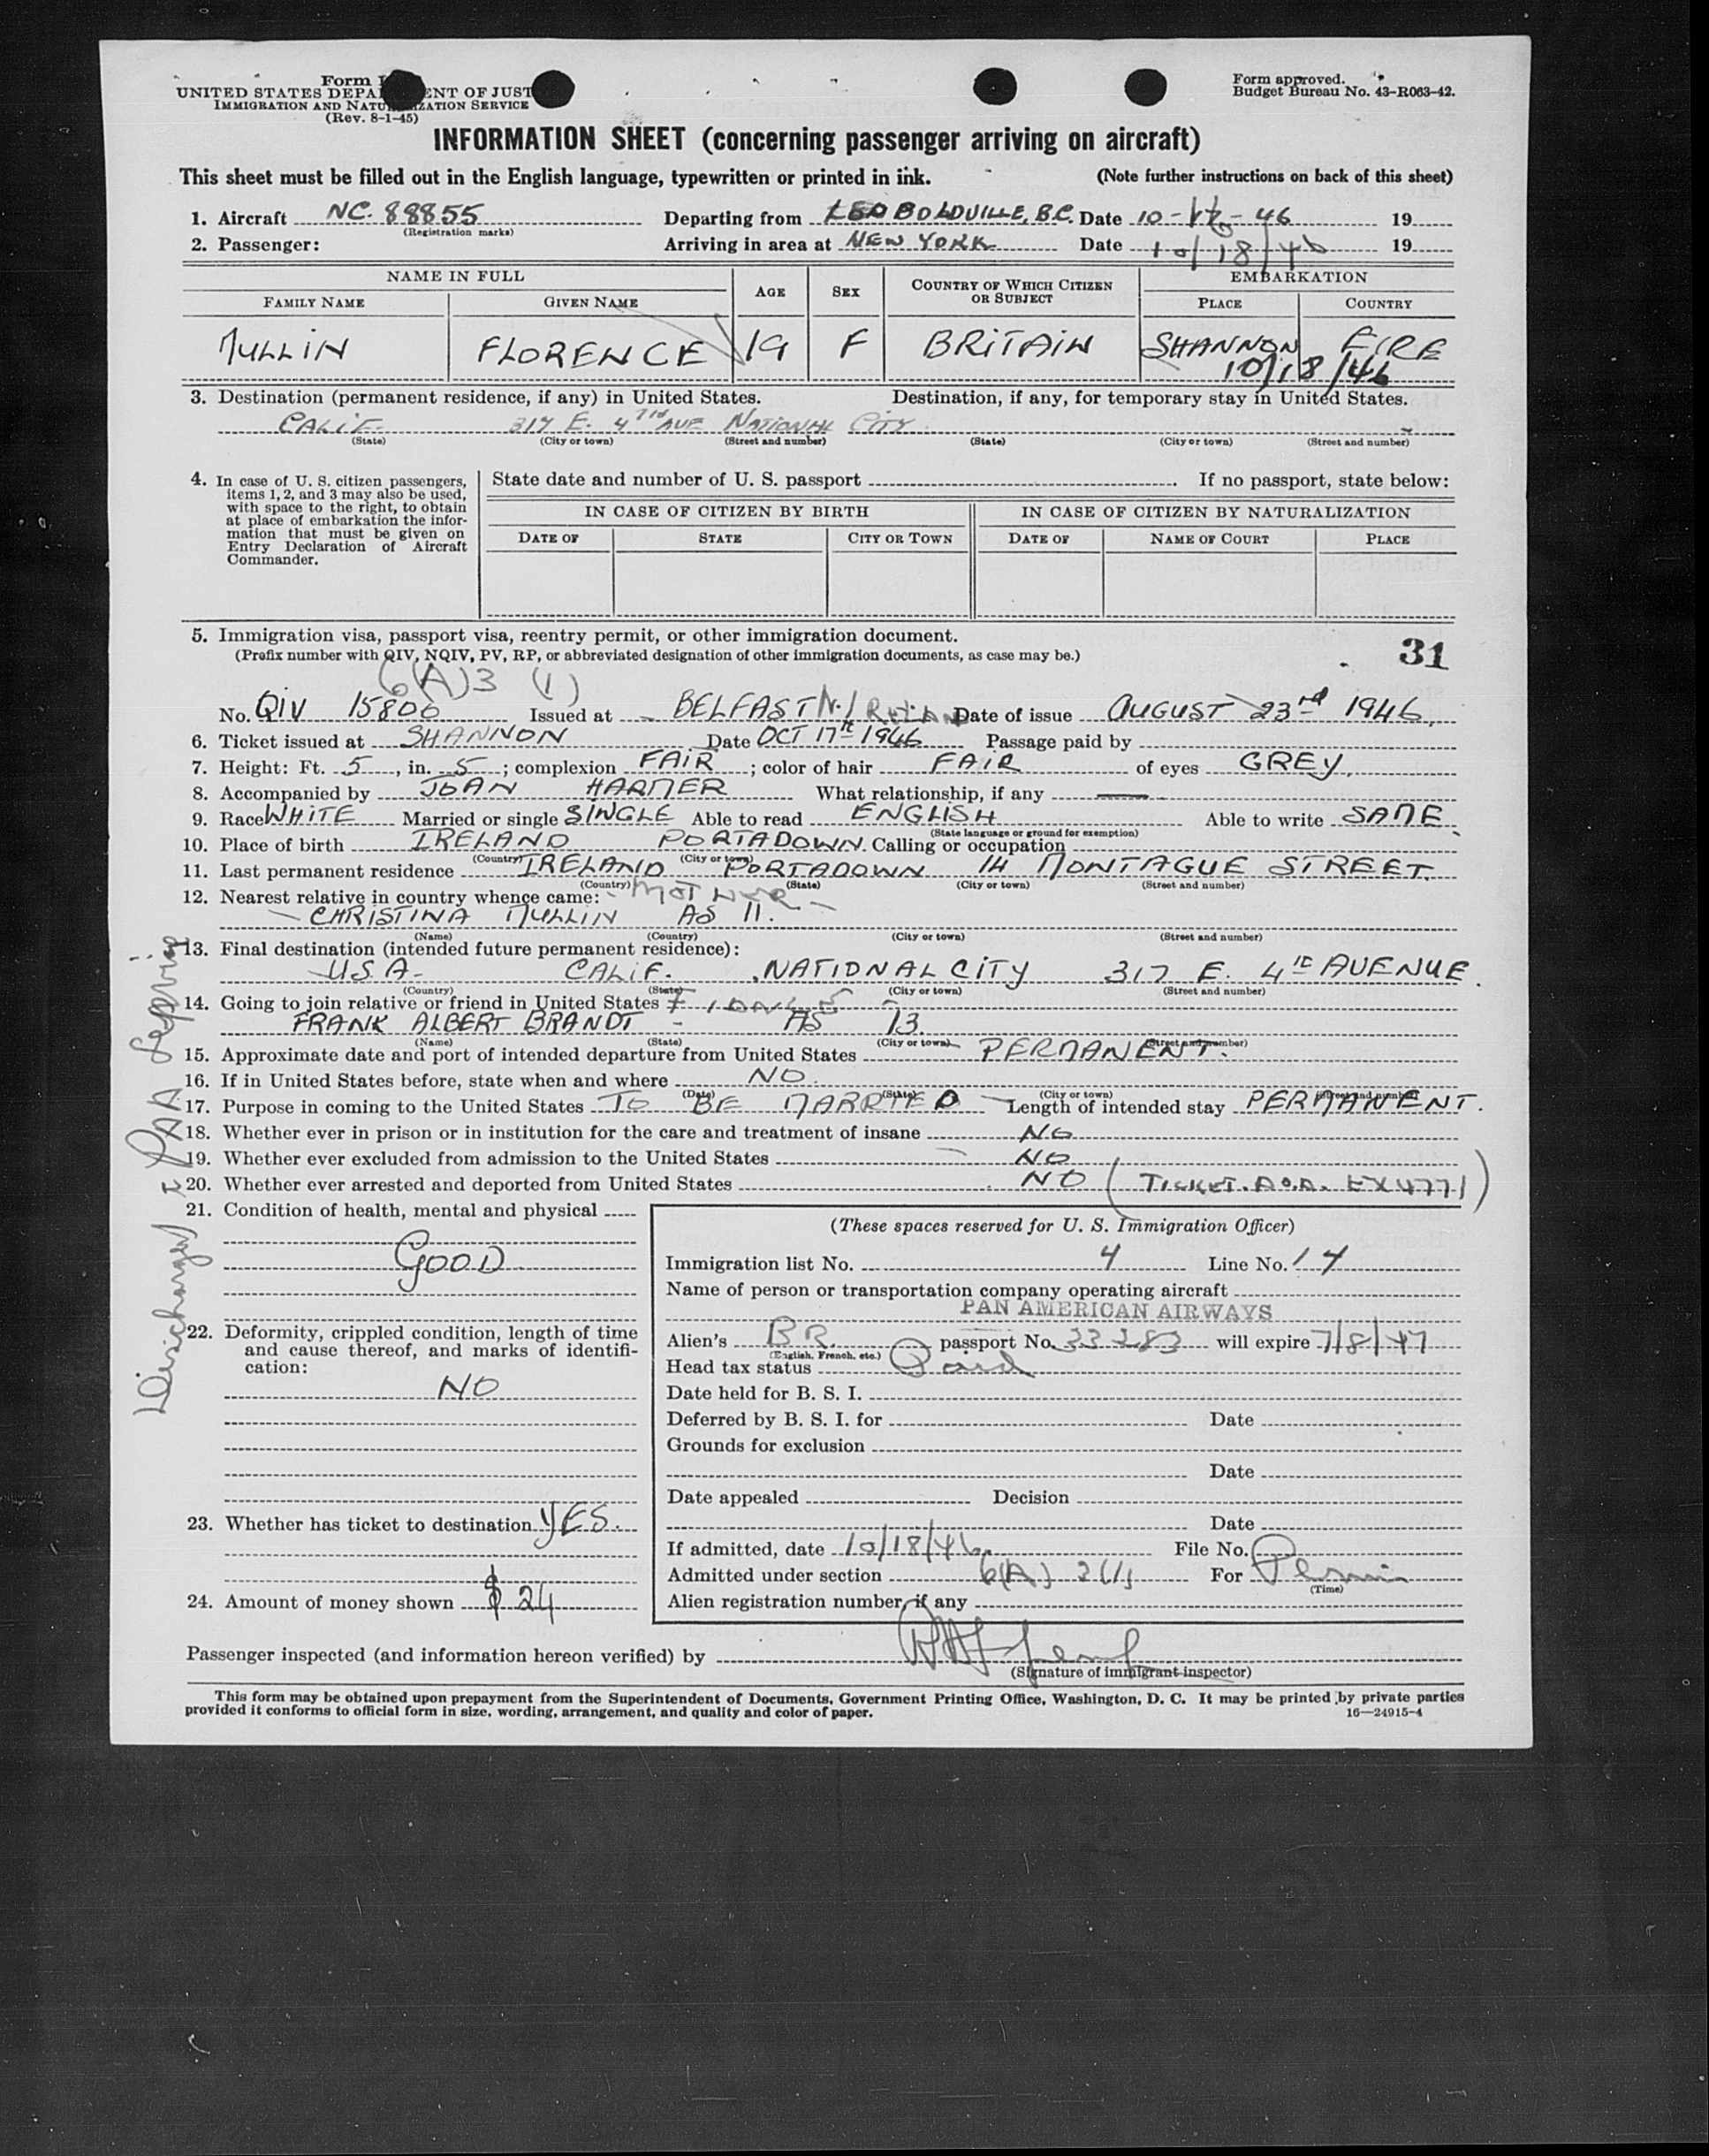 Form
UNITED STATES DEPA ENT OF JUST
IMMIGRATION AND NATU IZATION SERVICE
(Rev. 8-1-45)
Form approved.
Budget Bureau No. 43-R063-42.
INFORMATION SHEET (concerning passenger arriving on aircraft)
This sheet must be filled out in the English language, typewritten or printed in ink. (Note further instructions on back of this sheet)
1. Aircraft NC. 88855 Departing from LEOPOLDVILLE, B.C. Date 10- -46 19
(Registration marks)
2. Passenger: Arriving in area at NEW YORK Date 10/18/46 19
NAME IN FULL AGE SEX COUNTRY OF WHICH CITIZEN OR SUBJECT EMBARKATION
FAMILY NAME GIVEN NAME PLACE COUNTRY
MULLIN FLORENCE 19 F BRITAIN SHANNON EIRE
10/18/46
3. Destination (permanent residence, if any) in United States. Destination, if any, for temporary stay in United States.
CALIF. 317 E. 4TH AVE NATIONAL CITY
(State) (City or town) (Street and number) (State) (City or town) (Street and number)
4. In case of U. S. citizen passengers, items 1, 2, and 3 may also be used, with space to the right, to obtain at place of embarkation the information that must be given on Entry Declaration of Aircraft Commander.
State date and number of U. S. passport . If no passport, state below:
IN CASE OF CITIZEN BY BIRTH IN CASE OF CITIZEN BY NATURALIZATION
DATE OF STATE CITY OR TOWN DATE OF NAME OF COURT PLACE
5. Immigration visa, passport visa, reentry permit, or other immigration document.
(Prefix number with QIV, NQIV, PV, RP, or abbreviated designation of other immigration documents, as case may be.)
31
6(A)3 (1)
No. QIV 15800 Issued at BELFAST N. IRELAND Date of issue AUGUST 23rd 1946.
6. Ticket issued at SHANNON Date OCT 17th 1946 Passage paid by
7. Height: Ft. 5, in. 5; complexion FAIR; color of hair FAIR of eyes GREY.
8. Accompanied by JOAN HARMER What relationship, if any —
9. Race WHITE Married or single SINGLE Able to read ENGLISH Able to write SAME
(State language or ground for exemption)
10. Place of birth IRELAND PORTADOWN Calling or occupation
(Country) (City or town)
11. Last permanent residence IRELAND PORTADOWN 14 MONTAGUE STREET.
(Country) (State) (City or town) (Street and number)
12. Nearest relative in country whence came: - MOTHER -
CHRISTINA MULLIN AS 11.
(Name) (Country) (City or town) (Street and number)
13. Final destination (intended future permanent residence):
U.S.A. CALIF. NATIONAL CITY 317 E. 4th AVENUE.
(Country) (State) (City or town) (Street and number)
14. Going to join relative or friend in United States
FRANK ALBERT BRANDT - AS 13.
(Name) (State) (City or town) (Street and number)
15. Approximate date and port of intended departure from United States PERMANENT.
16. If in United States before, state when and where NO.
(Date) (State) (City or town) (Street and number)
17. Purpose in coming to the United States TO BE MARRIED Length of intended stay PERMANENT.
18. Whether ever in prison or in institution for the care and treatment of insane NO
19. Whether ever excluded from admission to the United States NO
20. Whether ever arrested and deported from United States NO (TICKET. A.O.A. EX4771)
21. Condition of health, mental and physical
GOOD
22. Deformity, crippled condition, length of time and cause thereof, and marks of identification:
NO
23. Whether has ticket to destination YES.
24. Amount of money shown $ 24
(These spaces reserved for U. S. Immigration Officer)
Immigration list No. 4 Line No. 14
Name of person or transportation company operating aircraft
PAN AMERICAN AIRWAYS
Alien's BR. passport No. 33283 will expire 7/8/47
(English, French, etc.)
Head tax status Paid
Date held for B. S. I.
Deferred by B. S. I. for Date
Grounds for exclusion
Date
Date appealed Decision
Date
If admitted, date 10/18/46 File No.
Admitted under section 6(A) 3(1) For Perm
(Time)
Alien registration number, if any
Passenger inspected (and information hereon verified) by
(Signature of immigrant inspector)
This form may be obtained upon prepayment from the Superintendent of Documents, Government Printing Office, Washington, D. C. It may be printed by private parties
provided it conforms to official form in size, wording, arrangement, and quality and color of paper. 16—24915-4
Discharged to PAA